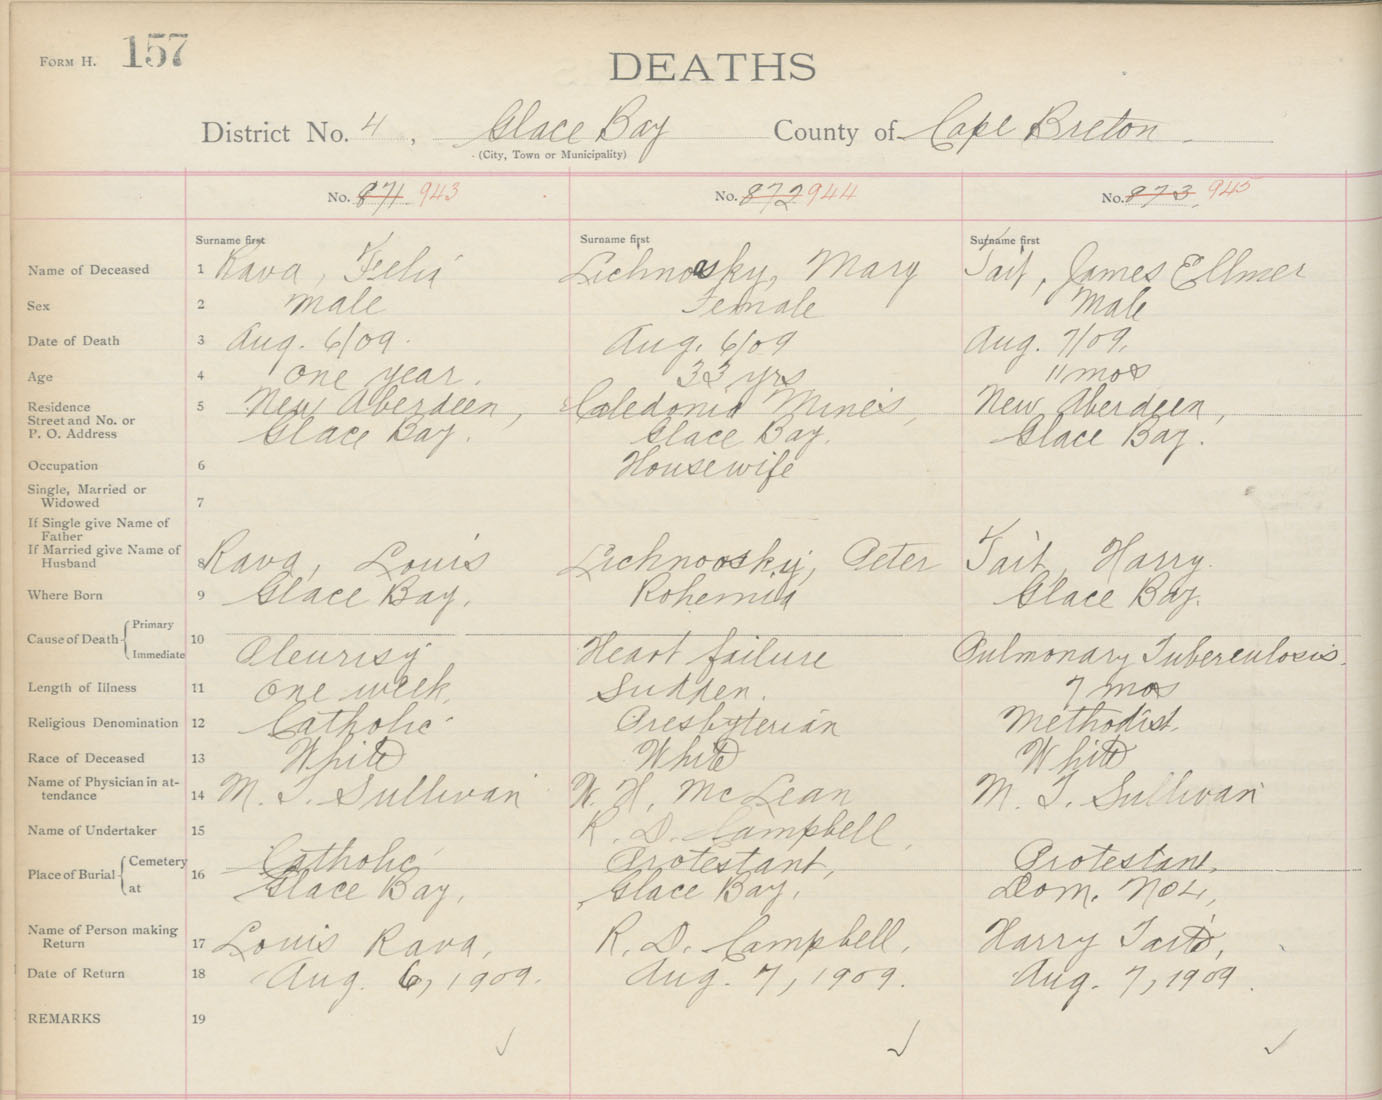 FORM H. 157
DEATHS
District No. 4, Glace Bay County of Cape Breton.
(City, Town or Municipality)
No. 871 943 No. 872 944 No. 873 945
Surname first Surname first Surname first
Name of Deceased 1 Rava, Lichnosky, Mary Tait, James Ellmer
Sex 2 male Female Male
Date of Death 3 Aug. 6/09. Aug. 6/09 Aug. 7/09.
Age 4 one year. 33 yrs 11 mos
Residence 5 New Aberdeen, Caledonia Mines, New Aberdeen,
Street and No. or
P. O. Address Glace Bay. Glace Bay. Glace Bay.
Occupation 6 Housewife
Single, Married or
Widowed 7
If Single give Name of
Father
If Married give Name of
Husband 8 Rava, Louis Lichnoosky, Peter Tait, Harry.
Where Born 9 Glace Bay. Bohemia Glace Bay.
Cause of Death { Primary 10
Immediate Pleurisy Heart failure Pulmonary Tuberculosis.
Length of Illness 11 one week. Sudden. 7 mos
Religious Denomination 12 Catholic Presbyterian Methodist.
Race of Deceased 13 White White White
Name of Physician in at-
tendance 14 M. T. Sullivan W. H. McLean M. T. Sullivan
Name of Undertaker 15 R. D. Campbell,
Place of Burial { Cemetery 16 Catholic Protestant, Protestant,
at Glace Bay, Glace Bay, Dom. No 4,
Name of Person making
Return 17 Louis Rava, R. D. Campbell, Harry Tait,
Date of Return 18 Aug. 6, 1909. Aug. 7, 1909. Aug. 7, 1909.
REMARKS 19